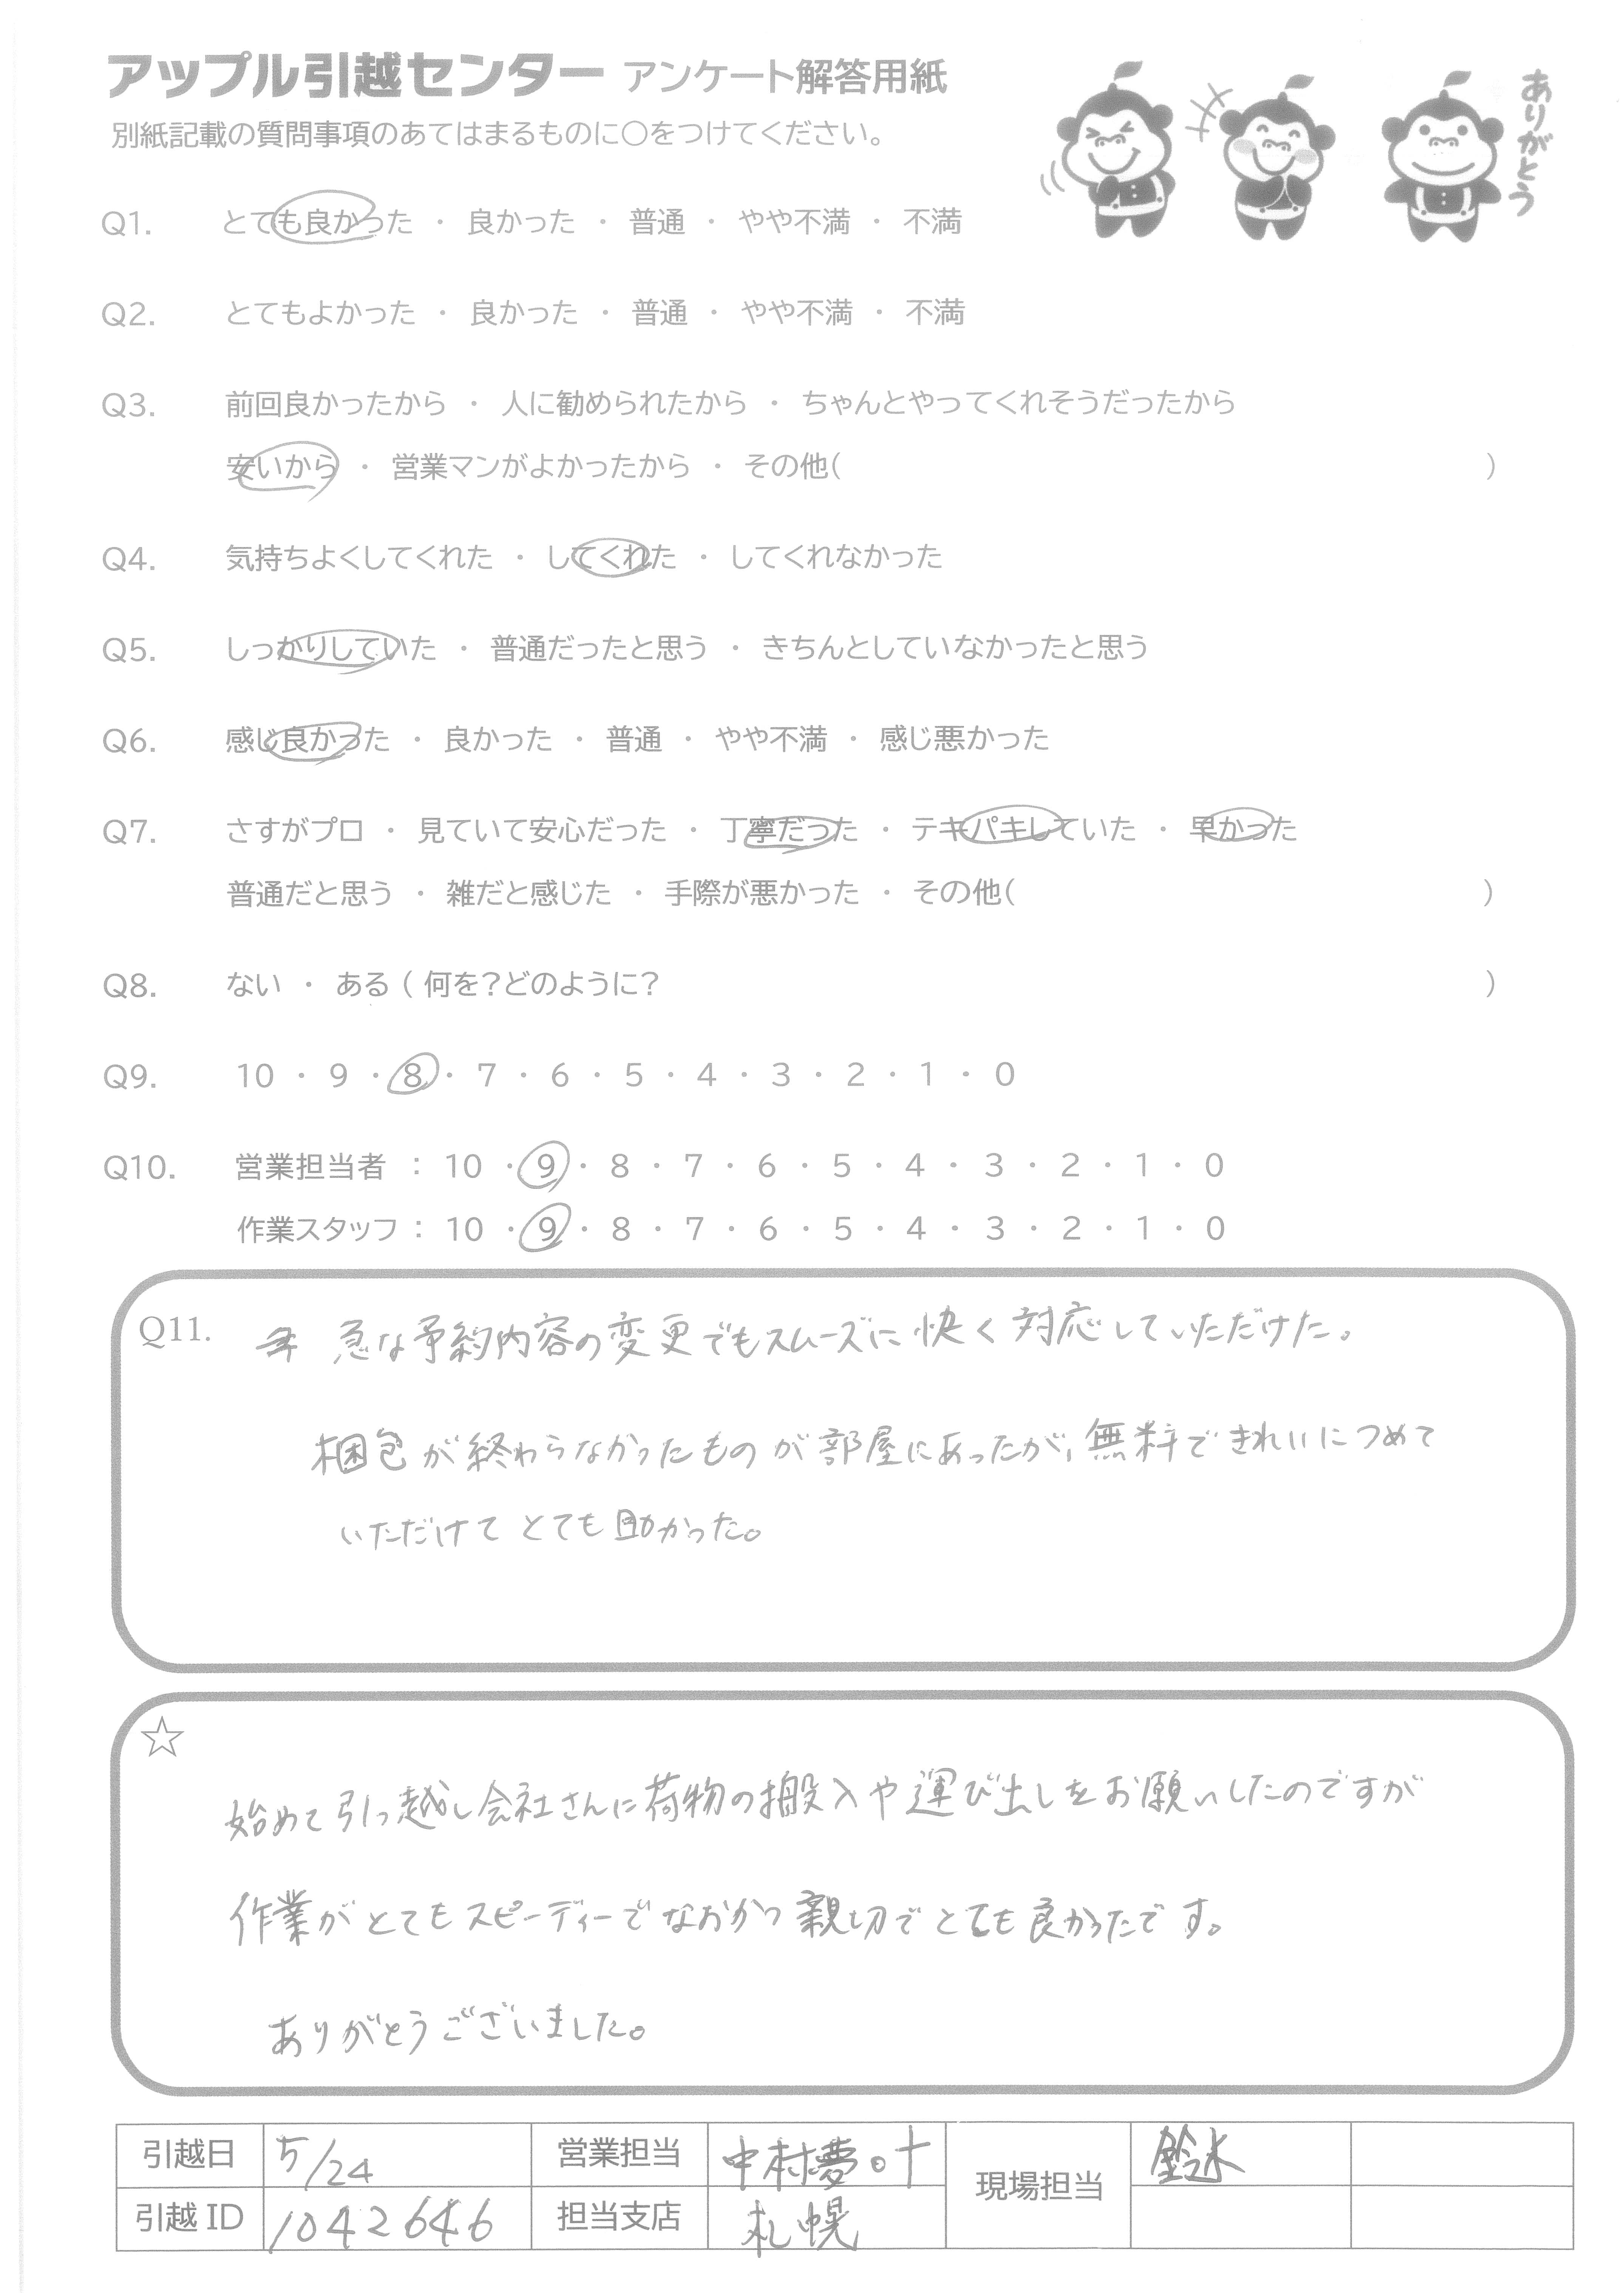 アップル引越センター アンケート解答用紙
ありがとう
別紙記載の質問事項のあてはまるものに○をつけてください。
Q1. とても良かった ・ 良かった ・ 普通 ・ やや不満 ・ 不満
Q2. とてもよかった ・ 良かった ・ 普通 ・ やや不満 ・ 不満
Q3. 前回良かったから ・ 人に勧められたから ・ ちゃんとやってくれそうだったから
安いから ・ 営業マンがよかったから ・ その他( )
Q4. 気持ちよくしてくれた ・ してくれた ・ してくれなかった
Q5. しっかりしていた ・ 普通だったと思う ・ きちんとしていなかったと思う
Q6. 感じ良かった ・ 良かった ・ 普通 ・ やや不満 ・ 感じ悪かった
Q7. さすがプロ ・ 見ていて安心だった ・ 丁寧だった ・ テキパキしていた ・ 早かった
普通だと思う ・ 雑だと感じた ・ 手際が悪かった ・ その他( )
Q8. ない ・ ある ( 何を?どのように? )
Q9. 10 ・ 9 ・ 8 ・ 7 ・ 6 ・ 5 ・ 4 ・ 3 ・ 2 ・ 1 ・ 0
Q10. 営業担当者 : 10 ・ 9 ・ 8 ・ 7 ・ 6 ・ 5 ・ 4 ・ 3 ・ 2 ・ 1 ・ 0
作業スタッフ : 10 ・ 9 ・ 8 ・ 7 ・ 6 ・ 5 ・ 4 ・ 3 ・ 2 ・ 1 ・ 0
Q11. 急な予約内容の変更でもスムーズに快く対応していただけた。
梱包が終わらなかったものが部屋にあったが、無料できれいにつめて
いただけてとても助かった。
☆
始めて引っ越し会社さんに荷物の搬入や運び出しをお願いしたのですが
作業がとてもスピーディーでなおかつ親切でとても良かったです。
ありがとうございました。
引越日 5/24 営業担当 中村夢叶 現場担当 鈴木
引越ID 1042646 担当支店 札幌